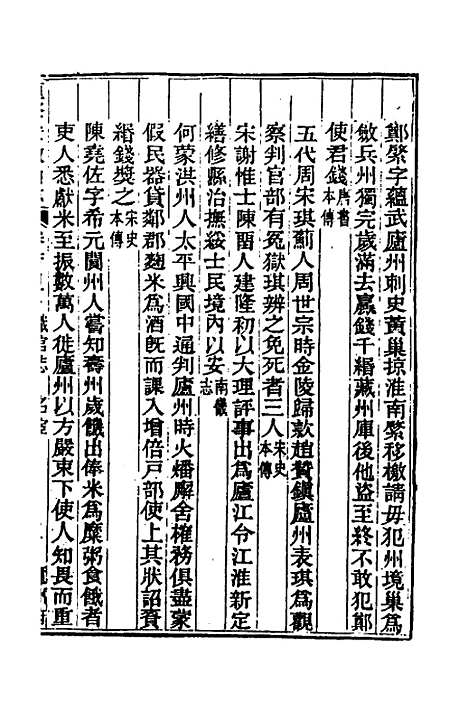 鄭綮字蘊武廬州刺史黃巢掠淮南綮移檄請毋犯州境巢爲
斂兵州獨完歲滿去贏錢千緡藏州庫後他盜至終不敢犯鄭
使君錢唐書本傳
五代周宋琪薊人周世宗時金陵歸款趙贊鎮廬州表琪爲觀
察判官部有冤獄琪辨之免死者三人宋史本傳
宋謝惟士陳留人建隆初以大理評事出爲廬江令江淮新定
繕修縣治撫綏士民境內以安南畿志
何蒙洪州人太平興國中通判廬州時火燔廨舍榷務俱盡蒙
假民器貸鄰郡麴米爲酒旣而課入增倍戶部使上其狀詔賚
緡錢獎之宋史本傳
陳堯佐字希元閬州人嘗知壽州歲饑出俸米爲糜粥食餓者
吏人悉獻米至振數萬人徙廬州以方嚴束下使人知畏而重
職官志
名宦